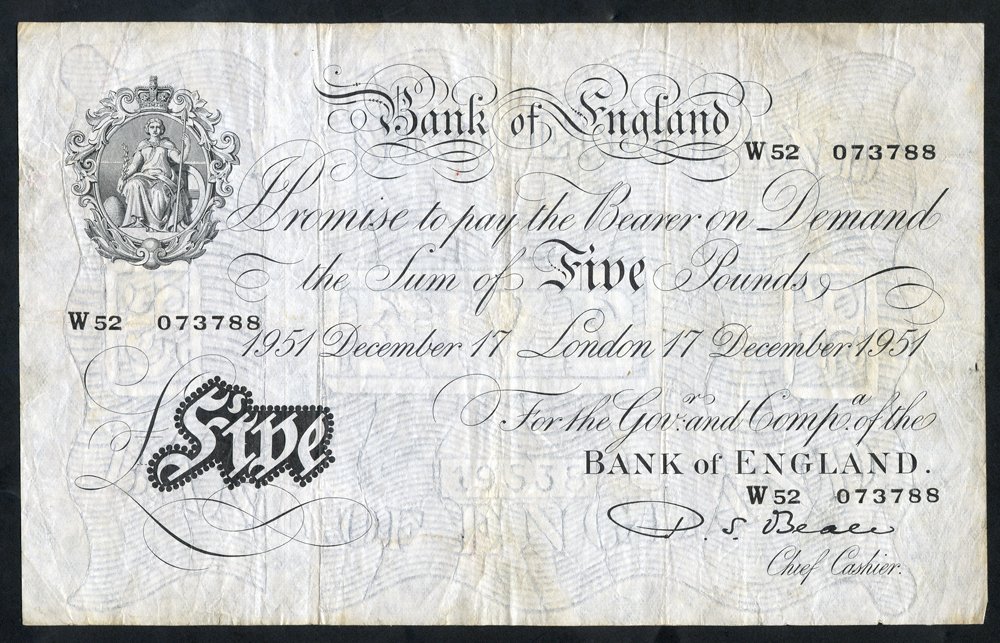 Bank of England
W52 073788
I Promise to pay the Bearer on Demand
the Sum of Five Pounds
W52 073788
1951 December 17 London 17 December 1951
£Five
For the Gov.r and Comp.a of the
BANK of ENGLAND.
W52 073788
P. S. Beale
Chief Cashier.